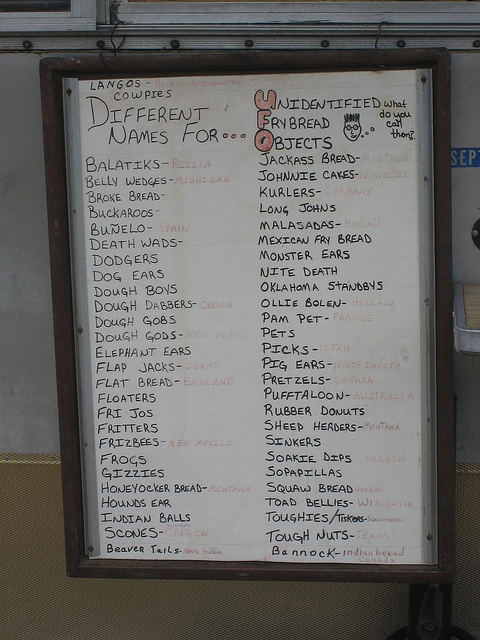 LANGOS -
COWPIES
DIFFERENT
NAMES FOR...
UNIDENTIFIED
FRYBREAD
OBJECTS
What
do you
call
them?
BALATIKS - RUSSIA
BELLY WEDGES - MICHIGAN
BROKE BREAD -
BUCKAROOS -
BUÑELO - SPAIN
DEATH WADS -
DODGERS
DOG EARS
DOUGH BOYS
DOUGH DABBERS -
DOUGH GOBS
DOUGH GODS - NEW YORK
ELEPHANT EARS
FLAP JACKS - IDAHO
FLAT BREAD - ENGLAND
FLOATERS
FRI JOS
FRITTERS
FRIZBEES - NEW MEXICO
FROGS
GIZZIES
HONEYOCKER BREAD - MONTANA
HOUNDS EAR
INDIAN BALLS
SCONES - OREGON
BEAVER TAILS - Nova Scotia
JACKASS BREAD - MONTANA
JOHNNIE CAKES - TENNESSEE
KURLERS - GERMANY
LONG JOHNS
MALASADAS - HAWAII
MEXICAN FRY BREAD
MONSTER EARS
NITE DEATH
OKLAHOMA STANDBYS
OLLIE BOLEN - HOLLAND
PAM PET - FRANCE
PETS
PICKS - UTAH
PIG EARS - NORTH DAKOTA
PRETZELS - CANADA
PUFFTALOON - AUSTRALIA
RUBBER DONUTS
SHEEP HERDERS - MONTANA
SINKERS
SOAKIE DIPS OREGON
SOPAPILLAS
SQUAW BREAD
TOAD BELLIES - WISCONSIN
TOUGHIES/
TOUGH NUTS - TEXAS
Bannock - indian bread
Canada
SEPT